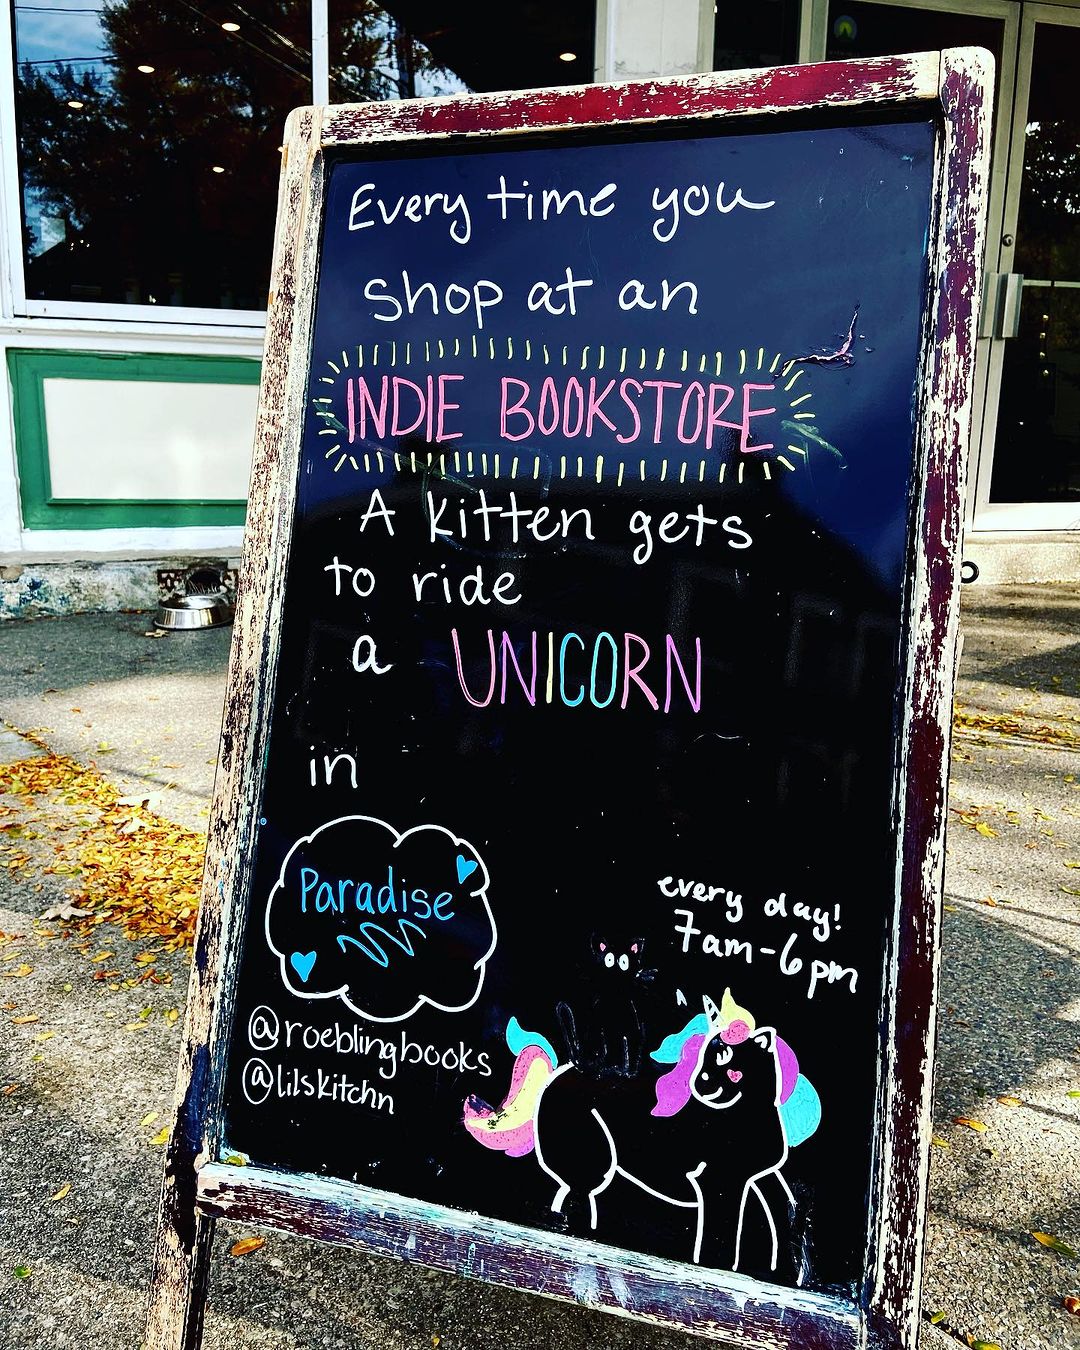 Every time you
shop at an
INDIE BOOKSTORE
A kitten gets
to ride
a UNICORN
in
Paradise
every day!
7am-6pm
@roeblingbooks
@lilskitchn